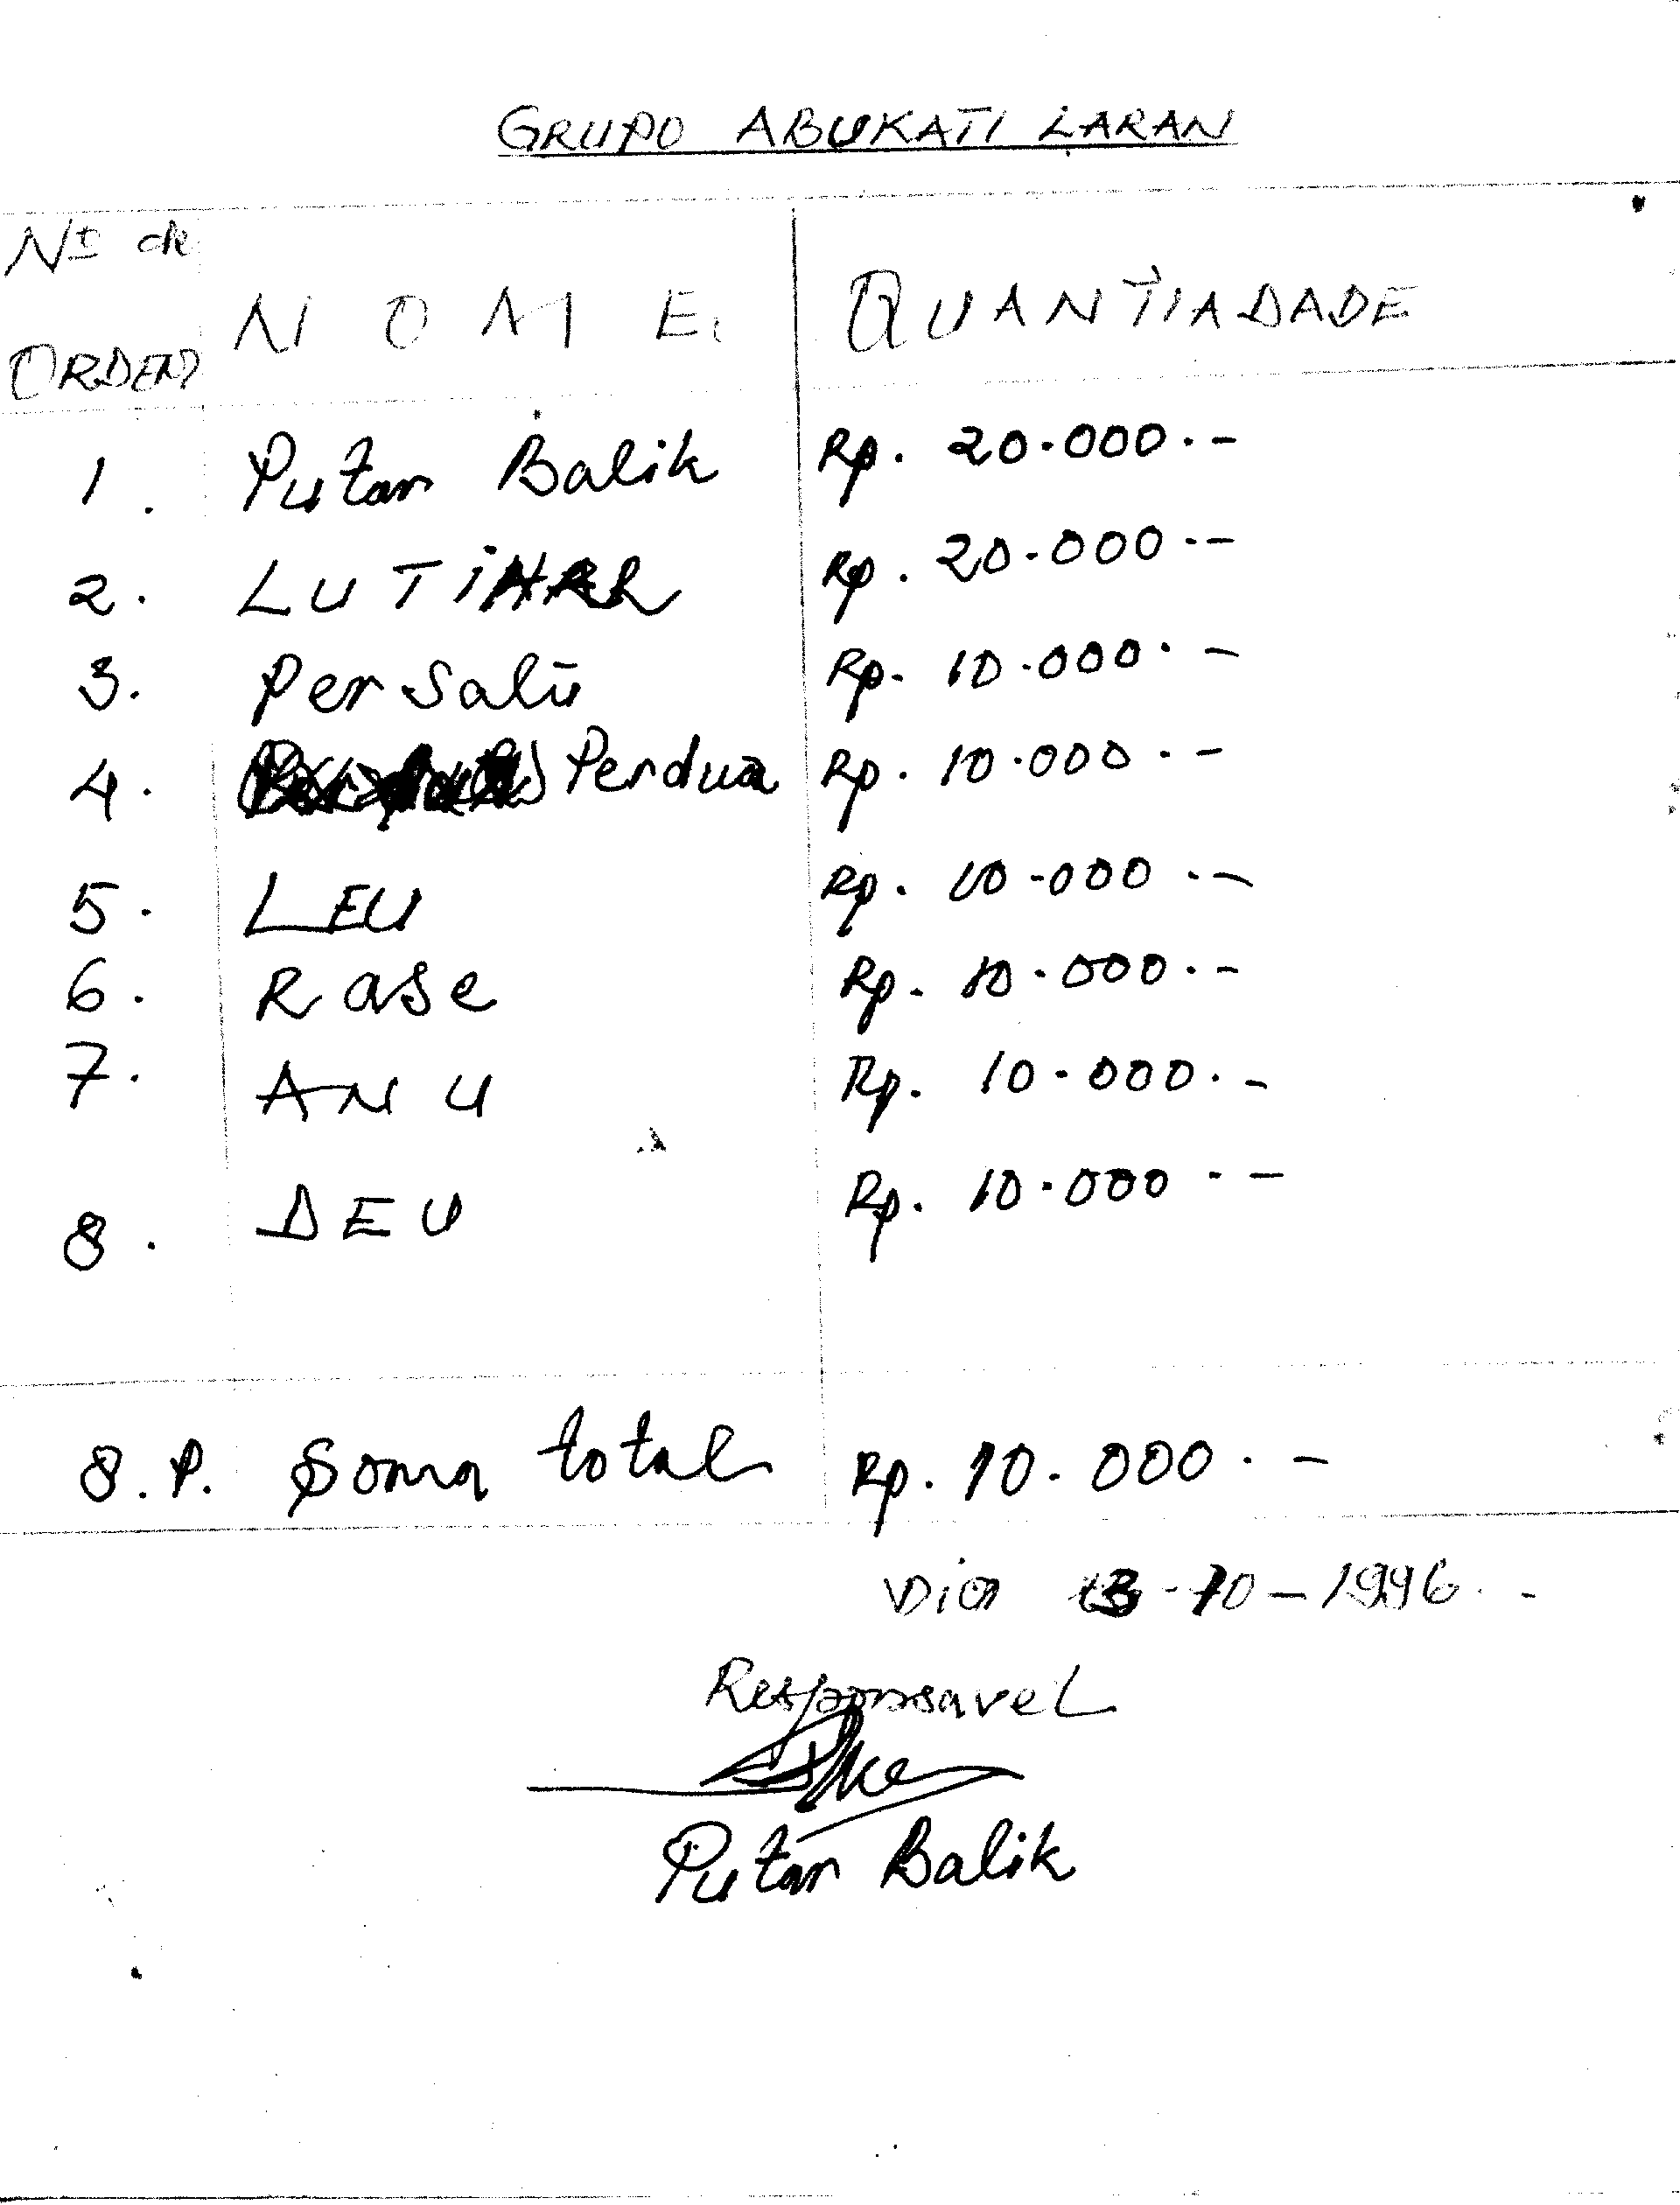 GRUPO ABUKATI LARAN
Nº de ORDEM NOME QUANTIADADE
1. Putar Balik Rp. 20.000.-
2. LUTIHAR Rp. 20.000.-
3. Per Satu Rp. 10.000.-
4. Perdua Rp. 10.000.-
5. LEU Rp. 10.000.-
6. Rase Rp. 10.000.-
7. ANU Rp. 10.000.-
8. DEU Rp. 10.000.-
8.P. Soma total Rp. 10.000.-
Dia 13-10-1996.-
Responsavel
Putar Balik